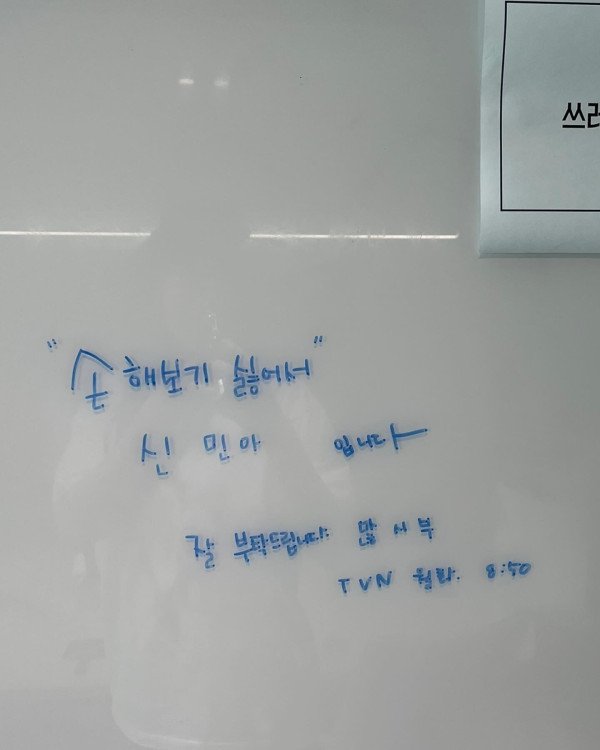 쓰레
"손해보기 싫어서"
신 민아 입니다
잘 부탁드립니다. 많 시 부
TVN 월화. 8:50